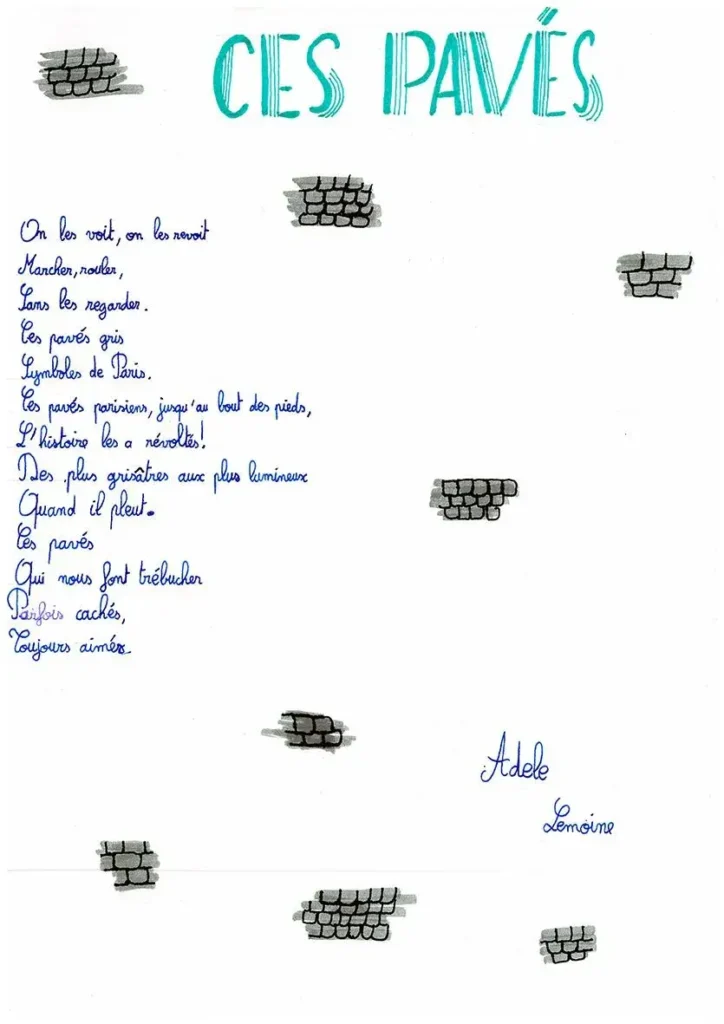 CES PAVÉS
On les voit, on les revoit
Marcher, rouler,
Sans les regarder.
Ces pavés gris
Symboles de Paris.
Ces pavés parisiens, jusqu'au bout des pieds,
L'histoire les a révoltés!
Des plus grisâtres aux plus lumineux
Quand il pleut.
Ces pavés
Qui nous font trébucher
Parfois cachés,
Toujours aimés.
Adele
Lemoine